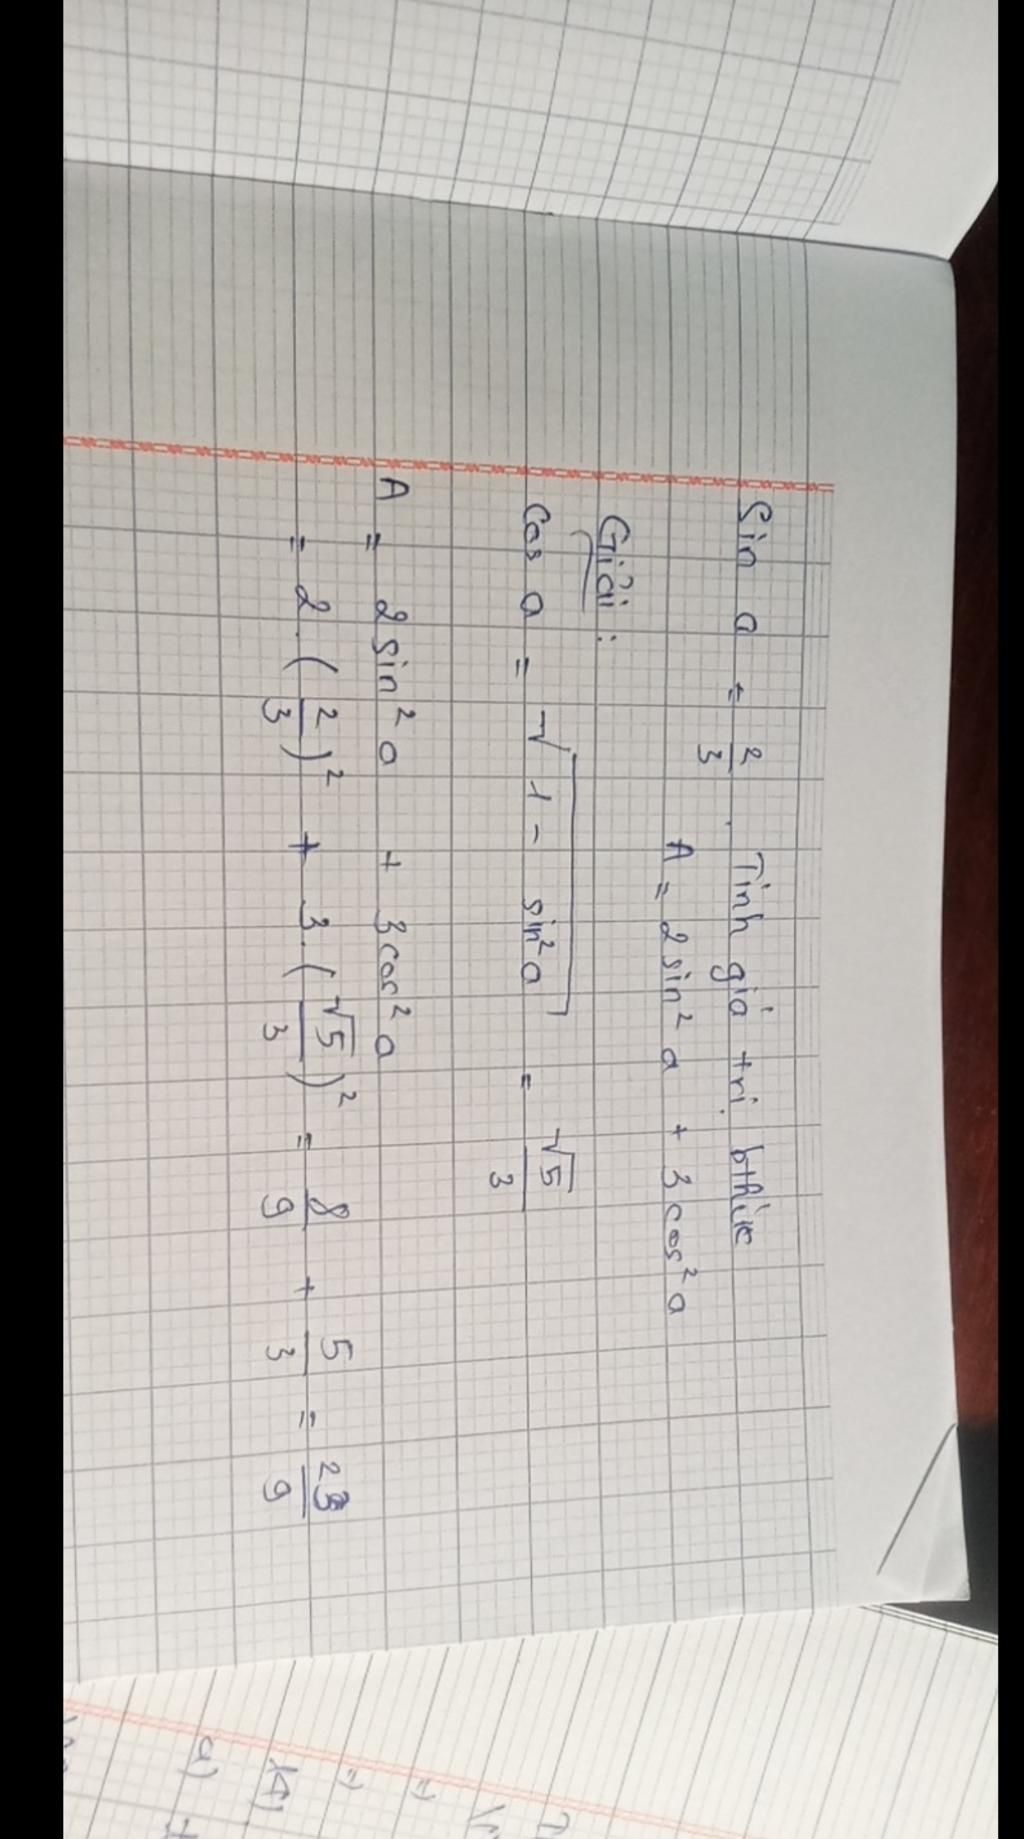 Sin a = 2/3. Tính giá trị bthức
A = 2sin² a + 3cos² a
Giải:
Cos a = √1 - sin² a = √5/3
A = 2sin² a + 3cos² a
= 2.(2/3)² + 3.(√5/3)² = 8/9 + 5/3 = 23/9